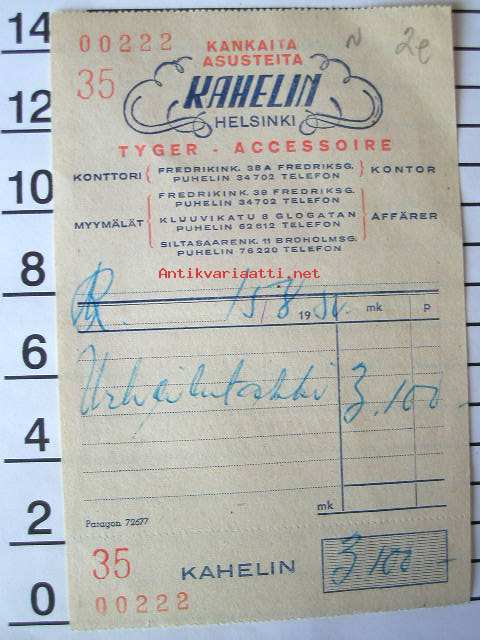 14
12
10
8
6
4
2
0
00222
35
N 2e
KANKAITA
ASUSTEITA
KAHELIN
HELSINKI
TYGER - ACCESSOIRE
KONTTORI { FREDRIKINK. 38 A FREDRIKSG. } KONTOR
PUHELIN 34 702 TELEFON
FREDRIKINK. 39 FREDRIKSG.
PUHELIN 34702 TELEFON
MYYMÄLÄT KLUUVIKATU 8 GLOGATAN AFFÄRER
PUHELIN 62 612 TELEFON
SILTASAARENK. 11 BROHOLMSG.
PUHELIN 76 220 TELEFON
Antikvariaatti.net
15/8 19 51. mk p
Urheilutakki 3.100-
mk
Paragon 72677
35 KAHELIN 3100-
00222